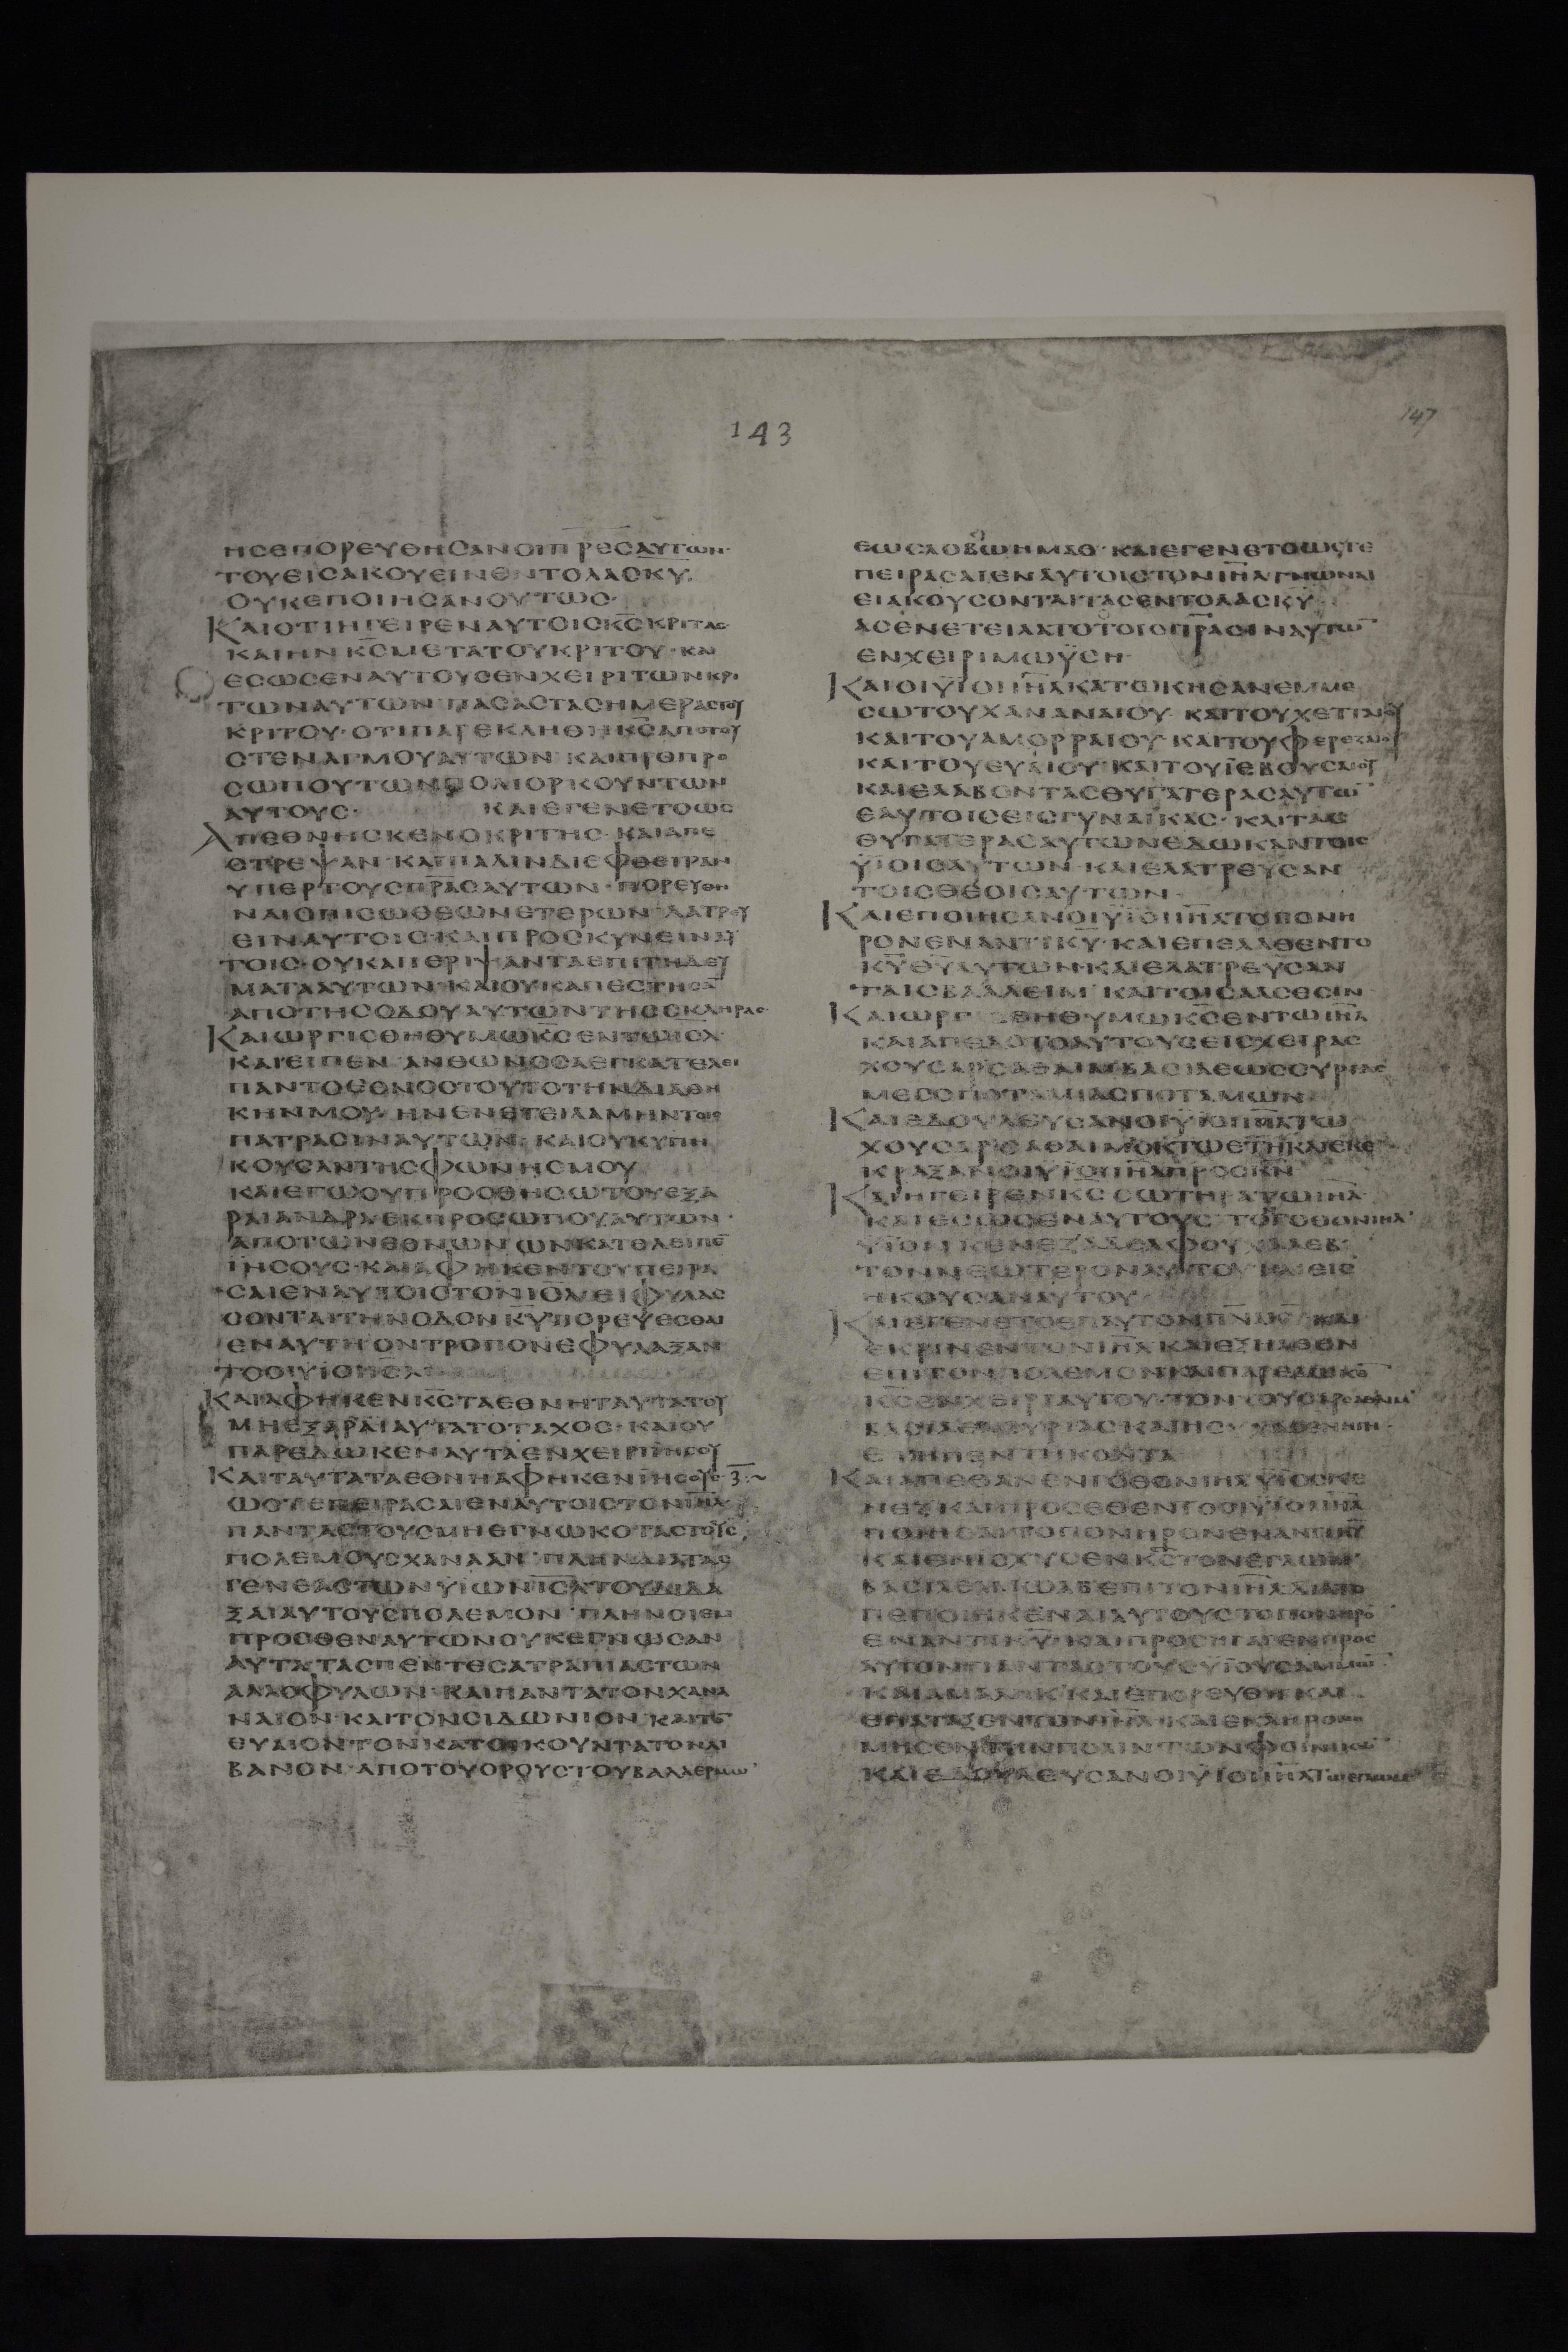 143
147
ΗCΕΠΟΡΕΥΘΗCΑΝΟΙΠΡΕCΑΥΤΩΝ·
ΤΟΥΕΙCΑΚΟΥΕΙΝΕΝΤΟΛΑCΚΥ·
ΟΥΚΕΠΟΙΗCΑΝΟΥΤΩC·
ΚΑΙΟΤΙΗΓΕΙΡΕΝΑΥΤΟΙCΚCΚΡΙΤΑC
ΚΑΙΗΝΚCΜΕΤΑΤΟΥΚΡΙΤΟΥ·ΚΑΙ
ΕCΩCΕΝΑΥΤΟΥCΕΝΧΕΙΡΙΤΩΝΚΡΙ
ΤΩΝΑΥΤΩΝΠΑCΑCΤΑCΗΜΕΡΑCΤΟΥ
ΚΡΙΤΟΥ·ΟΤΙΠΑΡΕΚΛΗΘΗΚCΑΠΟΤΟΥ
CΤΕΝΑΓΜΟΥΑΥΤΩΝΚΑΙΠΡΟΠΡΟ
CΩΠΟΥΤΩΝΠΟΛΙΟΡΚΟΥΝΤΩΝ
ΑΥΤΟΥC· ΚΑΙΕΓΕΝΕΤΟΩC
ΑΠΕΘΝΗCΚΕΝΟΚΡΙΤΗC·ΚΑΙΑΠΕ
CΤΡΕΨΑΝ·ΚΑΙΠΑΛΙΝΔΙΕΦΘΕΙΡΑΝ
ΥΠΕΡΤΟΥCΠΡΑCΑΥΤΩΝ·ΠΟΡΕΥΘΗ
ΝΑΙΟΠΙCΩΘΕΩΝΕΤΕΡΩΝΛΑΤΡΕΥ
ΕΙΝΑΥΤΟΙC·ΚΑΙΠΡΟCΚΥΝΕΙΝΑΥ
ΤΟΙC·ΟΥΚΑΠΕΡΙΨΑΝΤΑΕΠΙΤΗΔΕΥ
ΜΑΤΑΑΥΤΩΝ·ΚΑΙΟΥΚΑΠΕCΤΗCΑ
ΑΠΟΤΗCΟΔΟΥΑΥΤΩΝΤΗCCΚΛΗΡΑC
ΚΑΙΩΡΓΙCΘΗΘΥΜΩΚCΕΝΤΩΙCΛ
ΚΑΙΕΙΠΕΝ·ΑΝΘΩΝΟCΑΕΓΚΑΤΕΛΕΙ
ΠΑΝΤΟΕΘΝΟCΤΟΥΤΟΤΗΝΔΙΑΘΗ
ΚΗΝΜΟΥ·ΗΝΕΝΕΤΕΙΛΑΜΗΝΤΟΙC
ΠΑΤΡΑCΙΝΑΥΤΩΝ·ΚΑΙΟΥΚΥΠΗ
ΚΟΥCΑΝΤΗCΦΩΝΗCΜΟΥ
ΚΑΙΕΓΩΟΥΠΡΟCΘΗCΩΤΟΥΕΞΑ
ΡΑΙΑΝΔΡΑΕΚΠΡΟCΩΠΟΥΑΥΤΩΝ·
ΑΠΟΤΩΝΕΘΝΩΝΩΝΚΑΤΕΛΕΙΠΕ
ΙΗCΟΥC·ΚΑΙΑΦΗΚΕΝΤΟΥΠΕΙΡΑ
CΑΙΕΝΑΥΤΟΙCΤΟΝΙCΛΕΙΦΥΛΑC
CΟΝΤΑΙΤΗΝΟΔΟΝΚΥΠΟΡΕΥΕCΘΑΙ
ΕΝΑΥΤΗΟΝΤΡΟΠΟΝΕΦΥΛΑΞΑΝ
ΤΟΟΙΥΙΟΙΙCΛ
ΚΑΙΑΦΗΚΕΝΚCΤΑΕΘΝΗΤΑΥΤΑΤΟΥ
ΜΗΕΞΑΡΑΙΑΥΤΑΤΟΤΑΧΟC·ΚΑΙΟΥ
ΠΑΡΕΔΩΚΕΝΑΥΤΑΕΝΧΕΙΡΙΙΗCΟΥ
ΚΑΙΤΑΥΤΑΤΑΕΘΝΗΑΦΗΚΕΝΙΗCΟΥC
ΩCΤΕΠΕΙΡΑCΑΙΕΝΑΥΤΟΙCΤΟΝΙΗΛ
ΠΑΝΤΑCΤΟΥCΜΗΕΓΝΩΚΟΤΑCΤΟΥC
ΠΟΛΕΜΟΥCΧΑΝΑΑΝ·ΠΛΗΝΔΙΑΤΑC
ΓΕΝΕΑCΤΩΝΥΙΩΝΙCΛΤΟΥΔΙΔΑ
ΞΑΙΑΥΤΟΥCΠΟΛΕΜΟΝ·ΠΛΗΝΟΙΕΜ
ΠΡΟCΘΕΝΑΥΤΩΝΟΥΚΕΓΝΩCΑΝ
ΑΥΤΑΤΑCΠΕΝΤΕCΑΤΡΑΠΙΑCΤΩΝ
ΑΛΛΟΦΥΛΩΝ·ΚΑΙΠΑΝΤΑΤΟΝΧΑΝΑ
ΝΑΙΟΝ·ΚΑΙΤΟΝCΙΔΩΝΙΟΝ·ΚΑΙΤΟ
ΕΥΑΙΟΝΤΟΝΚΑΤΟΙΚΟΥΝΤΑΤΟΝΛΙ
ΒΑΝΟΝ·ΑΠΟΤΟΥΟΡΟΥCΤΟΥΒΑΛΑΕΡΜΩ
ΕΩCΛΟΒΩΗΜΑΘ·ΚΑΙΕΓΕΝΕΤΟΩCΤΕ
ΠΕΙΡΑCΑΙΕΝΑΥΤΟΙCΤΟΝΙΗΛΓΝΩΝΑΙ
ΕΙΑΚΟΥCΟΝΤΑΙΤΑCΕΝΤΟΛΑCΚΥ
ΑCΕΝΕΤΕΙΛΑΤΟΤΟΙCΠΡΑCΙΝΑΥΤΩ
ΕΝΧΕΙΡΙΜΩΥCΗ·
ΚΑΙΟΙΥΙΟΙΙΗΛΚΑΤΩΚΗCΑΝΕΜΜΕ
CΩΤΟΥΧΑΝΑΝΑΙΟΥ·ΚΑΙΤΟΥΧΕΤΤΑΙΟΥ
ΚΑΙΤΟΥΑΜΟΡΡΑΙΟΥ·ΚΑΙΤΟΥΦΕΡΕΖΑΙΟΥ
ΚΑΙΤΟΥΕΥΑΙΟΥ·ΚΑΙΤΟΥΙΕΒΟΥCΑΙΟΥ
ΚΑΙΕΛΑΒΟΝΤΑCΘΥΓΑΤΕΡΑCΑΥΤΩ
ΕΑΥΤΟΙCΕΙCΓΥΝΑΙΚΑC·ΚΑΙΤΑC
ΘΥΓΑΤΕΡΑCΑΥΤΩΝΕΔΩΚΑΝΤΟΙC
ΥΙΟΙCΑΥΤΩΝ·ΚΑΙΕΛΑΤΡΕΥCΑΝ
ΤΟΙCΘΕΟΙCΑΥΤΩΝ
ΚΑΙΕΠΟΙΗCΑΝΟΙΥΙΟΙΙΗΛΤΟΠΟΝΗ
ΡΟΝΕΝΑΝΤΙΚΥ·ΚΑΙΕΠΕΛΑΘΕΝΤΟ
ΚΥΘΥΑΥΤΩΝ·ΚΑΙΕΛΑΤΡΕΥCΑΝ
ΤΑΙCΒΑΑΛΕΙΜ·ΚΑΙΤΟΙCΑΛCΕCΙΝ
ΚΑΙΩΡΓΙCΘΗΘΥΜΩΚCΕΝΤΩΙΗΛ
ΚΑΙΑΠΕΔΟΤΟΑΥΤΟΥCΕΙCΧΕΙΡΑC
ΧΟΥCΑΡCΑΘΑΙΜΒΑCΙΛΕΩCCΥΡΙΑC
ΜΕCΟΠΟΤΑΜΙΑCΠΟΤΑΜΩΝ
ΚΑΙΕΔΟΥΛΕΥCΑΝΟΙΥΙΟΙΙΗΛΤΩ
ΧΟΥCΑΡCΑΘΑΙΜΟΚΤΩΕΤΗΚΑΙΕΚΕ
ΚΡΑΞΑΝΟΙΥΙΟΙΙΗΛΠΡΟCΚΝ
ΚΑΙΗΓΕΙΡΕΝΚCCΩΤΗΡΑΤΩΙΗΛ
ΚΑΙΕCΩCΕΝΑΥΤΟΥC·ΤΟΓΟΘΟΝΙΗΛ
ΥΙΟΝΚΕΝΕΖΑΔΕΛΦΟΥΧΑΛΕΒ
ΤΟΝΝΕΩΤΕΡΟΝΑΥΤΟΥ·ΚΑΙΕΙC
ΗΚΟΥCΑΝΑΥΤΟΥ
ΚΑΙΕΓΕΝΕΤΟΕΠΑΥΤΟΝΠΝΑΚΥ·ΚΑΙ
ΕΚΡΙΝΕΝΤΟΝΙΗΛΚΑΙΕΞΗΛΘΕΝ
ΕΠΙΤΟΝΠΟΛΕΜΟΝΚΑΙΠΑΡΕΔΩΚΕ
ΚCΕΝΧΕΙΡΙΑΥΤΟΥ·ΤΟΝΧΟΥCΑΡCΑΘΑΙΜ
ΚΑΙΑΠΕΘΑΝΕΝΓΟΘΟΝΙΗΛΥΙΟCΚΕ
ΝΕΖΚΑΙΠΡΟCΕΘΕΝΤΟΟΙΥΙΟΙΙΗΛ
ΠΟΙΗCΑΙΤΟΠΟΝΗΡΟΝΕΝΑΝΤΙΚΥ
ΚΑΙΕΝΙCΧΥCΕΝΚCΤΟΝΕΓΛΩΜ
ΒΑCΙΛΕΑΜΩΑΒΕΠΙΤΟΝΙΗΛΔΙΑΤΟ
ΠΕΠΟΙΗΚΕΝΑΙΑΥΤΟΥCΤΟΠΟΝΗΡΟ
ΕΝΑΝΤΙΚΥ·ΚΑΙΠΡΟCΗΓΑΓΕΝΠΡΟC
ΑΥΤΟΝΠΑΝΤΑCΤΟΥCΥΙΟΥCΑΜΜΩ
ΚΑΙΑΜΑΛΗΚ·ΚΑΙΕΠΟΡΕΥΘΗΚΑΙ
ΕΠΑΤΑΞΕΝΤΟΝΙΗΛ·ΚΑΙΕΚΛΗΡΟΝΟ
ΜΗCΕΝΤΗΝΠΟΛΙΝΤΩΝΦΟΙΝΙΚΩ
ΚΑΙΕΔΟΥΛΕΥCΑΝΟΙΥΙΟΙΙΗΛΤΩΕΓΛΩΜ